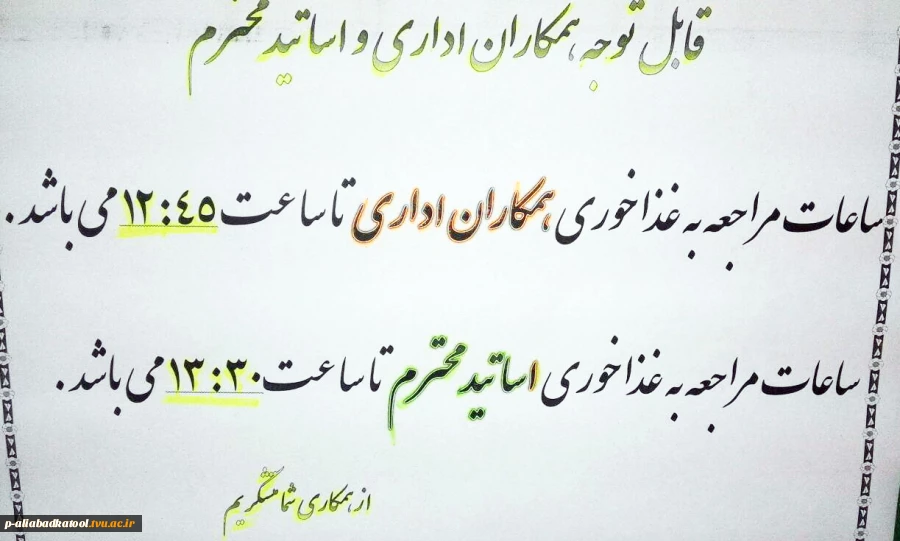 قابل توجه همکاران اداری و اساتید محترم
ساعات مراجعه به غذاخوری همکاران اداری تا ساعت ۱۲:٤٥ می باشد.
ساعات مراجعه به غذاخوری اساتید محترم تا ساعت ۱۳:۳۰ می باشد.
از همکاری شما متشکریم
p-aliabadkatool.tvu.ac.ir